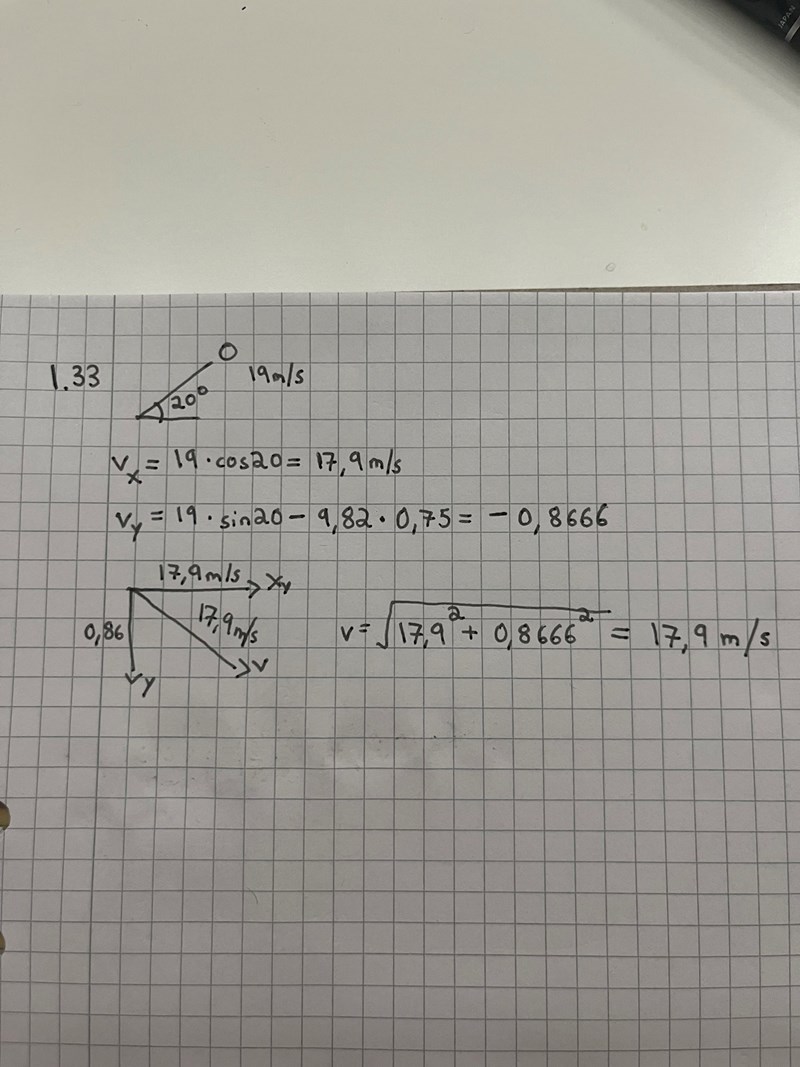 JAPAN
1.33
19m/s
20°
Vx = 19 · cos20 = 17,9 m/s
Vy = 19 · sin20 - 9,82 · 0,75 = - 0,8666
17,9 m/s
xy
0,86
17,9 m/s
v
vy
v = √17,9² + 0,8666² = 17,9 m/s